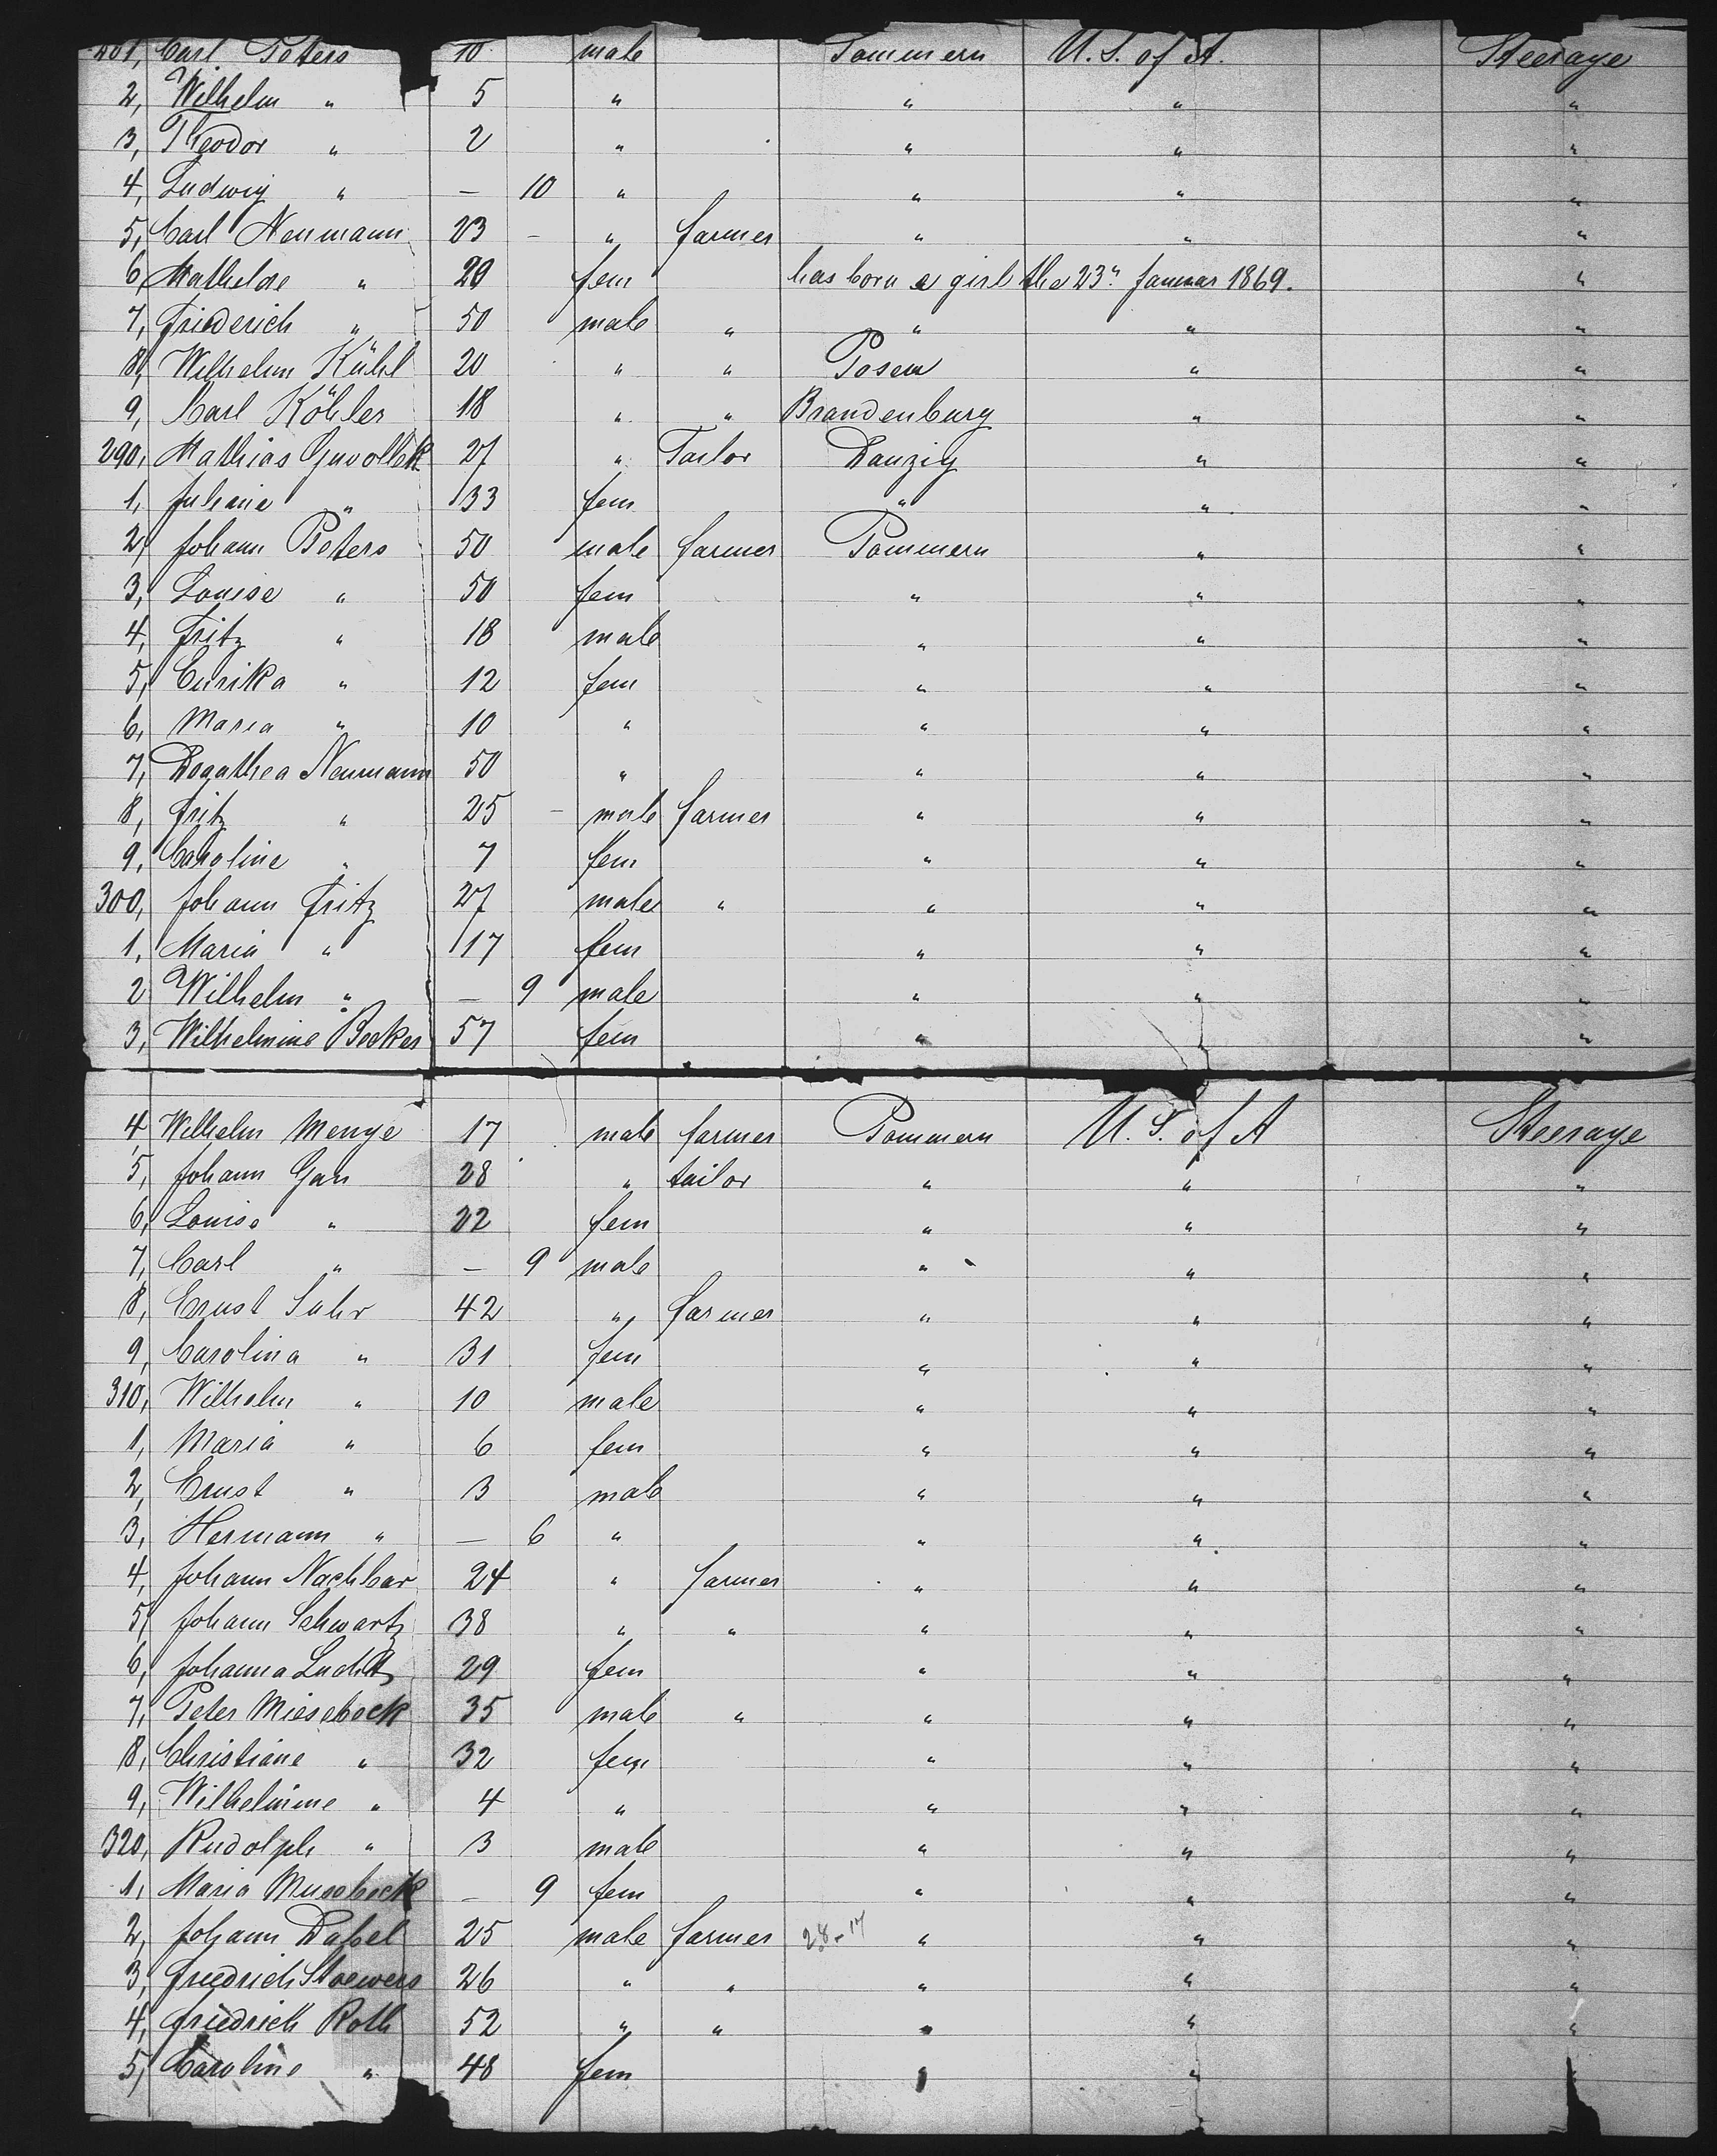 281, Carl Peters 10 male Pommern U. S. of A. Steerage
2, Wilhelm " 5 " " " "
3, Theodor " 2 " " " "
4, Ludwig " — 10 " " " "
5, Carl Neumann 23 — " farmer " " "
6, Mathilde " 20 fem has born a girl the 23" Januar 1869. "
7, Friederich " 50 male " " " "
8, Wilhelm Kühl 20 " " Posen " "
9, Carl Köhler 18 " " Brandenburg " "
290, Mathias 27 " Tailor Danzig " "
1, Juliane " 33 fem " " "
2, Johann Peters 50 male farmer Pommern " "
3, Louise " 50 fem " " "
4, Fritz " 18 male " " "
5, " 12 fem " " "
6, Maria " 10 " " " "
7, Dogathea Neumann 50 " " " "
8, Fritz " 25 — male farmer " " "
9, Caroline " 7 fem " " "
300, Johann Fritz 27 male " " " "
1, Maria " 17 fem " " "
2 Wilhelm " — 9 male " " "
3, Wilhelmine Becker 57 fem " "
4, Wilhelm Menge 17 male farmer Pommern U. S. of A Steerage
5, Johann Gau 28 " tailor " " "
6, Louise " 22 fem " " "
7, Carl " — 9 male " " "
8, Ernst Suhr 42 " farmer " " "
9, Carolina " 31 fem " " "
310, Wilhelm " 10 male " " "
1, Maria " 6 fem " " "
2, Ernst " 3 male " " "
3, Hermann " — 6 " " " "
4, Johann Nachbar 24 " farmer " " "
5, Johann Schwartz 38 " " " " "
6, Johanna 29 fem " " "
7, Peter Miesebeck 35 male " " " "
8, Christiane " 32 fem " " "
9, Wilhelmine " 4 " " " "
320, Rudolph " 3 male " " "
1, Maria Musebeck — 9 fem " " "
2, Johann Daßel 25 male farmer 28-17 " " "
3, Friedrich Stoewers 26 " " " " "
4, Friedrich Roth 52 " " " " "
5, Caroline " 48 fem " "